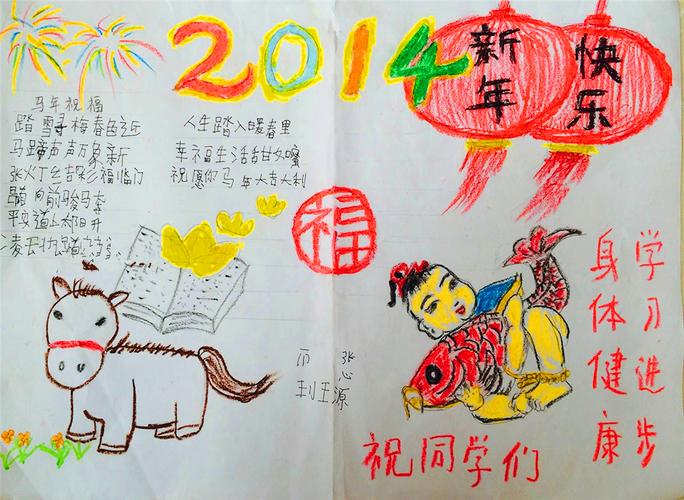 2014
新年
快乐
马年祝福
踏雪寻梅春近
马蹄声声万象新
张灯结彩福临门
向前骏马奔
平安道上太阳升
凌云
人生踏入暖春里
幸福生活甜如蜜
祝愿你马年大吉大利
福
学习进步
身体健康
张心源
祝同学们